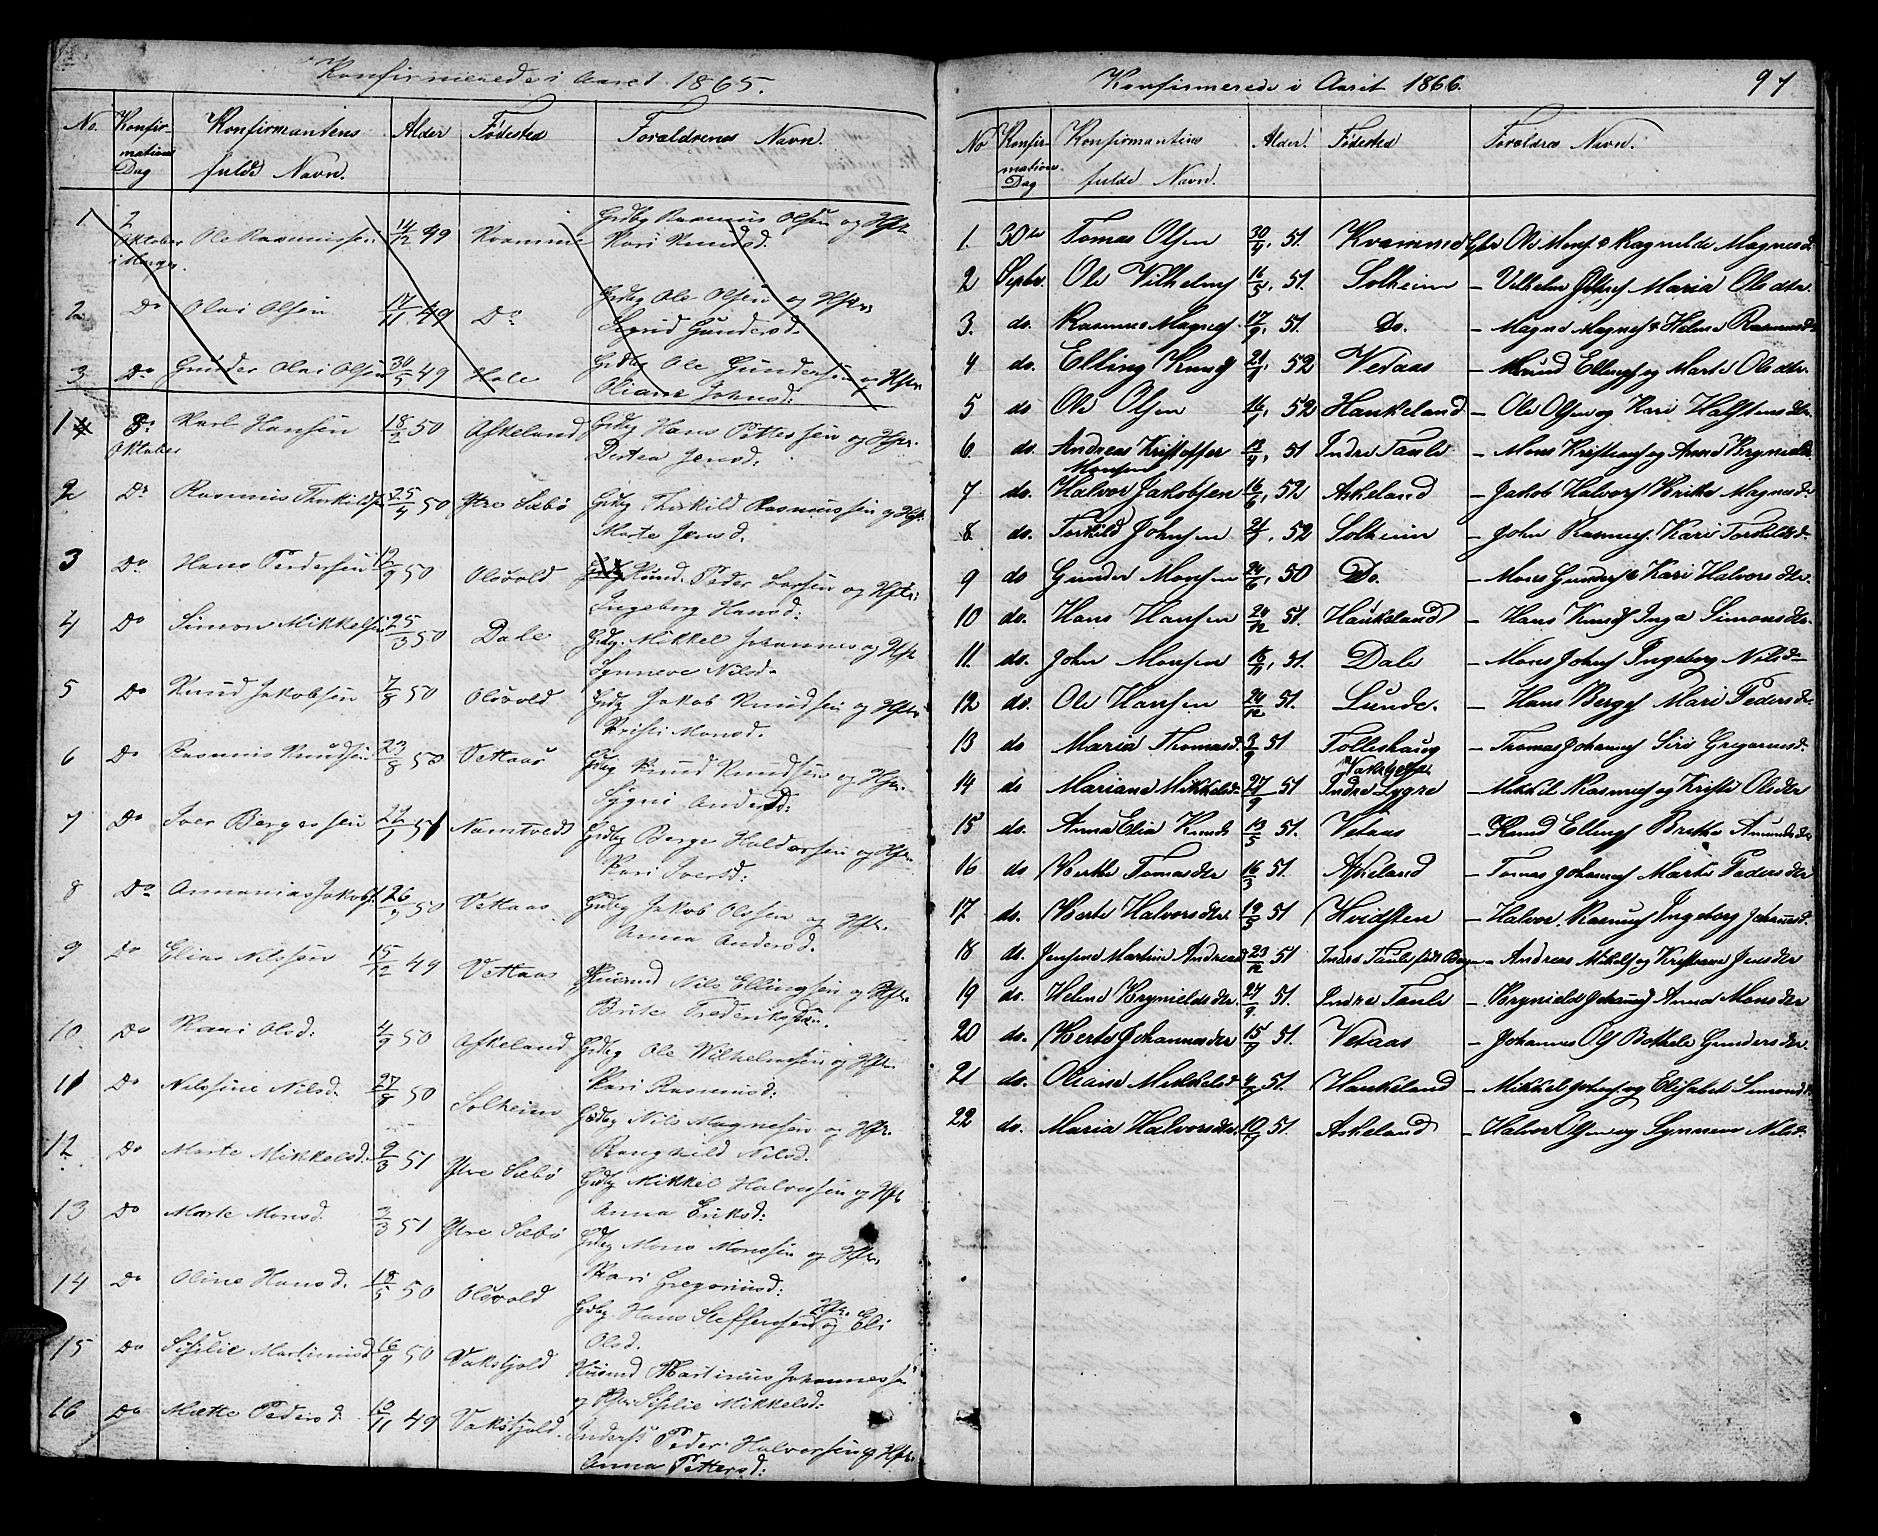 Konfirmerede i Aaret 1865.
No. Konfirmations Dag Konfirmantens fulde Navn. Alder Fødested Foraldrenes Navn.
1 2 Oktober Ole Rasmussen 14/12 49 Kvamme Grdbg Rasmus Olsen og Hstr
Kari Knudsd.
2 Do Olai Olsen 17/11 49 Do Grdbg Ole Olsen og Hstr
Sigrid Gundersd.
3 Do Gunder Olai Olsen 30/5 49 Hole Grdbg Ole Gundersen og Hstr
Oliane Johnsd.
1 Oktober Karl Hansen 18/2 50 Askeland Grdbg Hans Pettersen og Hstr.
Dortea Jensd.
2 Do Rasmus Thorkilds 25/4 50 Ytre Sæbø Grdbg Thorkild Rasmussen og Hstr.
Marte Jensd.
3 Do Hans Pedersen 12/9 50 Olsvold Husmd. Peder Larsen og Hstr:
Ingeborg Hansd.
4 Do Simon Mikkelsen 25/3 50 Dale Grdbg. Mikkel Johannes og Hstr
Synneve Nilsd.
5 Do Knud Jakobsen 7/8 50 Olsvold Grdbg Jakob Knudsen og Hstr
Kristi Monsd.
6 Do Rasmus Knudsen 23/8 50 Vettaas Grdbg Knud Knudsen og Hstr.
Sygni Andersd:
7 Do Iver Bergessen 22/1 51 Namtvedt Grdbg Berge Haldorsen og Hstr.
Kari Iversd:
8 Do Annanias Jakobs. 26/9 50 Vettaas Grdbg Jakob Olssen og Hstr.
Anna Andersd.
9 Do Elias Nilssen 15/12 49 Vettaas Husmd Nils Ellingsen og Hstr.
Brite Frederiks
10. Do Kari Olsd: 4/9 50 Askeland Grdbg Ole Wilhelmsen og Hstr.
Kari Rasmusd:
11 Do Nilsine Nilsd. 27/8 50 Solheim Grdbg Nils Magnesen og Hstr.
Rangnild Nilsd.
12 Do Marte Mikkelsd. 9/3 51 Ytre Sæbø Grdbg Mikkel Halvorsen og Hstr
Anna Eriksd:
13 Do Marte Monsd. 3/3 51 Ytre Sæbø Grdbg Mons Monssen og Hstr.
Kari Gregoriusd:
14 Do Oline Hansd. 18/5 50 Olsvold Grdbg Hans Steffensen og Hstr. Eli
Olsd.
15 Do Sisilie Martinusd 16/9 50 Vaksfjold Husmd Martinus Johannessen
og Hstr Sisilie Mikkelsd.
16 Do Mette Pedersd. 10/11 49 Vaksfjold. Inderst Peder Halvorsen og Hstr.
Anna Pettersd:
Konfirmerede i Aaret 1866. 97
No Konfirmations Dag Konfirmantens fulde Navn. Alder. Fødested Foraldres Navn.
1. 30te Tomas Olsen 30/9 51. Kvamme Ole Mons & Ragnilde Magnesd
2 Septbr. Ole Vilhelms 16/5 51. Solheim - Vilhelm Ols Maria Olsdtr.
3. do. Rasmus Magnes 17/9 51. Do. - Magne Magnes & Helene Rasmusd
4 do. Elling Knuds 21/1 52 Vetaas - Knud Ellings og Marte Olsdtr.
5 do Ole Olsen 16/1 52 Haukeland - Ole Olsen og Kari Halstensdtr.
6. do. Andreas Kristoffer Monsen 13/4 51 Indre Taule - Mons Kristians og Anna Brynields
7 do. Halvor Jakobsen 16/6 52 Askeland - Jakob Halvors Brithe Magnesdr
8 do. Torkild Johnsen 21/1 52 Solheim - John Rasmus. Kari Torkildsd
9 do Gunder Monsen 24/6 50 Do. - Mons Gunders & Kari Halvorsdtr.
10 do. Hans Hansen 24/12 51. Haukeland - Hans Knuds Inga Simonsdtr.
11. do. John Monsen 18/11 51. Dale - Mons Johns Ingeborg Nilsd
12 do. Ole Hansen 24/12 51. Lunde. - Hans Berges Mari Pedersdr.
13 do Maria Thomasd. 3/9 51 Folleshaug - Thomas Johannes Siri Gregoriusd.
14 do Mariane Mikkelsd. 27/9 51 Indre Lygre - Mikkel Rasmus og Kristi Olsdtr
15 do. Anna Elia Knuds 13/5 51. Vetaas - Knud Ellings Brithe Amundsdtr
16 do Berthe Tomasdtr 16/3 51. Askeland - Tomas Johannes Marte Pedersdtr
17. do. Berte Halvorsdtr. 19/3 51 Hvidsten - Halvor Rasmus Ingeborg Johannesd.
18 do. Jensine Martine Andreasd 23/12 51 Indre Taule født Bergen - Andreas Mikels og Kristiane Jensdtr
19 do. Helene Brynieldsdtr 27/9 51. Indre Taule - Brynield Johannes Anna Monsdtr
20 do. Berte Johannesdtr 15/9 51. Vetaas - Johannes Ols Bothele Gundersdtr.
21 do. Oliane Mikkelsd. 4/7 51. Haukeland - Mikkel Johns og Elisabet Simonsd
22 do. Maria Halvorsdtr. 10/9 51. Askeland - Halvor Olsen og Synneve Nilsd.